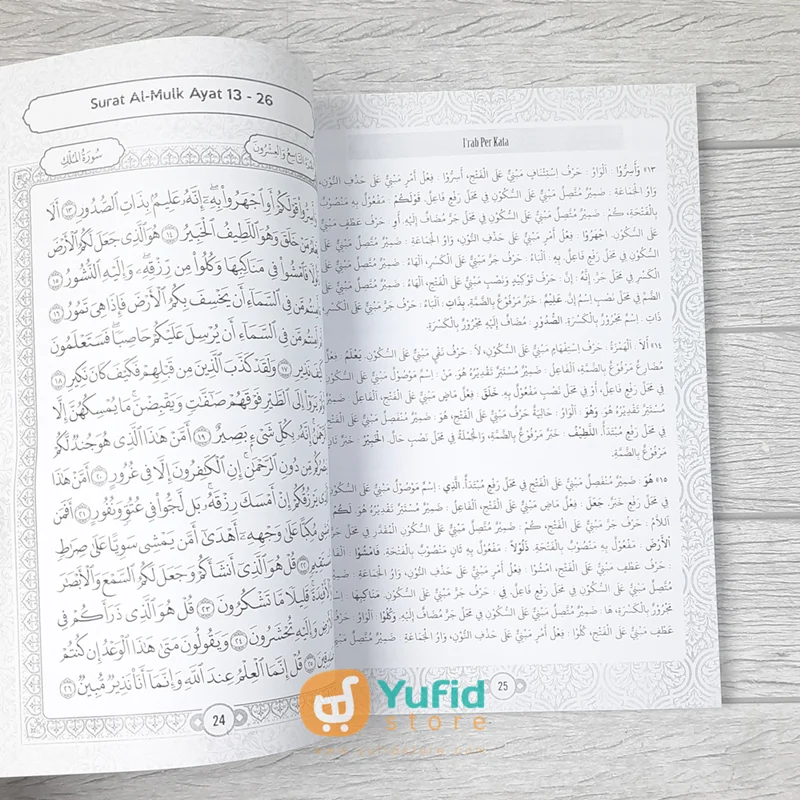 Surat Al-Mulk Ayat 13 - 26
سُورَةُ المُلْكِ
وَأَسِرُّوا۟ قَوْلَكُمْ أَوِ ٱجْهَرُوا۟ بِهِۦٓ ۖ إِنَّهُۥ عَلِيمٌۢ بِذَاتِ ٱلصُّدُورِ ١٣ أَلَا
يَعْلَمُ مَنْ خَلَقَ وَهُوَ ٱللَّطِيفُ ٱلْخَبِيرُ ١٤ هُوَ ٱلَّذِى جَعَلَ لَكُمُ ٱلْأَرْضَ
ذَلُولًا فَٱمْشُوا۟ فِى مَنَاكِبِهَا وَكُلُوا۟ مِن رِّزْقِهِۦ ۖ وَإِلَيْهِ ٱلنُّشُورُ ١٥
ءَأَمِنتُم مَّن فِى ٱلسَّمَآءِ أَن يَخْسِفَ بِكُمُ ٱلْأَرْضَ فَإِذَا هِىَ تَمُورُ ١٦
أَمْ أَمِنتُم مَّن فِى ٱلسَّمَآءِ أَن يُرْسِلَ عَلَيْكُمْ حَاصِبًا ۖ فَسَتَعْلَمُونَ
كَيْفَ نَذِيرِ ١٧ وَلَقَدْ كَذَّبَ ٱلَّذِينَ مِن قَبْلِهِمْ فَكَيْفَ كَانَ نَكِيرِ ١٨
أَوَلَمْ يَرَوْا۟ إِلَى ٱلطَّيْرِ فَوْقَهُمْ صَٰٓفَّٰتٍ وَيَقْبِضْنَ ۚ مَا يُمْسِكُهُنَّ إِلَّا
ٱلرَّحْمَٰنُ ۚ إِنَّهُۥ بِكُلِّ شَىْءٍۭ بَصِيرٌ ١٩ أَمَّنْ هَٰذَا ٱلَّذِى هُوَ جُندٌ لَّكُمْ
يَنصُرُكُم مِّن دُونِ ٱلرَّحْمَٰنِ ۚ إِنِ ٱلْكَٰفِرُونَ إِلَّا فِى غُرُورٍ ٢٠ أَمَّنْ هَٰذَا
ٱلَّذِى يَرْزُقُكُمْ إِنْ أَمْسَكَ رِزْقَهُۥ ۚ بَل لَّجُّوا۟ فِى عُتُوٍّ وَنُفُورٍ ٢١ أَفَمَن
يَمْشِى مُكِبًّا عَلَىٰ وَجْهِهِۦٓ أَهْدَىٰٓ أَمَّن يَمْشِى سَوِيًّا عَلَىٰ صِرَٰطٍ
مُّسْتَقِيمٍ ٢٢ قُلْ هُوَ ٱلَّذِىٓ أَنشَأَكُمْ وَجَعَلَ لَكُمُ ٱلسَّمْعَ وَٱلْأَبْصَٰرَ
وَٱلْأَفْـِٔدَةَ ۖ قَلِيلًا مَّا تَشْكُرُونَ ٢٣ قُلْ هُوَ ٱلَّذِى ذَرَأَكُمْ فِى
ٱلْأَرْضِ وَإِلَيْهِ تُحْشَرُونَ ٢٤ وَيَقُولُونَ مَتَىٰ هَٰذَا ٱلْوَعْدُ إِن كُنتُمْ
صَٰدِقِينَ ٢٥ قُلْ إِنَّمَا ٱلْعِلْمُ عِندَ ٱللَّهِ وَإِنَّمَآ أَنَا۠ نَذِيرٌ مُّبِينٌ ٢٦
24
I'rab Per Kata
١٣# وَأَسِرُّوا. اَلْوَاوُ : حَرْفُ اسْتِئْنَافٍ مَبْنِيٌّ عَلَى الْفَتْحِ، أَسِرُّوا : فِعْلُ أَمْرٍ مَبْنِيٌّ عَلَى حَذْفِ النُّوْنِ،
وَاوُ الْجَمَاعَةِ : ضَمِيْرٌ مُتَّصِلٌ مَبْنِيٌّ عَلَى السُّكُوْنِ فِي مَحَلِّ رَفْعٍ فَاعِلٌ. قَوْلَكُمْ : مَفْعُوْلٌ بِهِ مَنْصُوْبٌ
بِالْفَتْحَةِ، كُمْ : ضَمِيْرٌ مُتَّصِلٌ مَبْنِيٌّ عَلَى السُّكُوْنِ فِي مَحَلِّ جَرٍّ مُضَافٌ إِلَيْهِ. أَوِ : حَرْفُ عَطْفٍ مَبْنِيٌّ
عَلَى السُّكُوْنِ. اجْهَرُوا : فِعْلُ أَمْرٍ مَبْنِيٌّ عَلَى حَذْفِ النُّوْنِ، وَاوُ الْجَمَاعَةِ : ضَمِيْرٌ مُتَّصِلٌ مَبْنِيٌّ عَلَى
السُّكُوْنِ فِي مَحَلِّ رَفْعٍ فَاعِلٌ. بِهِ. اَلْبَاءُ : حَرْفُ جَرٍّ مَبْنِيٌّ عَلَى الْكَسْرِ، اَلْهَاءُ : ضَمِيْرٌ مُتَّصِلٌ مَبْنِيٌّ عَلَى
الْكَسْرِ فِي مَحَلِّ جَرٍّ. إِنَّهُ. إِنَّ : حَرْفُ تَوْكِيْدٍ وَنَصْبٍ مَبْنِيٌّ عَلَى الْفَتْحِ، اَلْهَاءُ : ضَمِيْرٌ مُتَّصِلٌ مَبْنِيٌّ عَلَى
الضَّمِّ فِي مَحَلِّ نَصْبٍ اِسْمُ إِنَّ. عَلِيْمٌ : خَبَرٌ مَرْفُوْعٌ بِالضَّمَّةِ. بِذَاتِ. اَلْبَاءُ : حَرْفُ جَرٍّ مَبْنِيٌّ عَلَى الْكَسْرِ،
ذَاتِ : اِسْمٌ مَجْرُوْرٌ بِالْكَسْرَةِ. الصُّدُوْرِ : مُضَافٌ إِلَيْهِ مَجْرُوْرٌ بِالْكَسْرَةِ.
١٤# أَلَا. اَلْهَمْزَةُ : حَرْفُ اسْتِفْهَامٍ مَبْنِيٌّ عَلَى الْفَتْحِ، لَا : حَرْفُ نَفْيٍ مَبْنِيٌّ عَلَى السُّكُوْنِ. يَعْلَمُ : فِعْلٌ
مُضَارِعٌ مَرْفُوْعٌ بِالضَّمَّةِ، اَلْفَاعِلُ : ضَمِيْرٌ مُسْتَتِرٌ تَقْدِيْرُهُ هُوَ. مَنْ : اِسْمٌ مَوْصُوْلٌ مَبْنِيٌّ عَلَى السُّكُوْنِ
فِي مَحَلِّ رَفْعٍ فَاعِلٌ، أَوْ فِي مَحَلِّ نَصْبٍ مَفْعُوْلٌ بِهِ. خَلَقَ : فِعْلٌ مَاضٍ مَبْنِيٌّ عَلَى الْفَتْحِ، اَلْفَاعِلُ : ضَمِيْرٌ
مُسْتَتِرٌ تَقْدِيْرُهُ هُوَ. وَهُوَ. اَلْوَاوُ : حَالِيَّةٌ حَرْفٌ مَبْنِيٌّ عَلَى الْفَتْحِ، هُوَ : ضَمِيْرٌ مُنْفَصِلٌ مَبْنِيٌّ عَلَى الْفَتْحِ
فِي مَحَلِّ رَفْعٍ مُبْتَدَأٌ. اللَّطِيْفُ : خَبَرٌ مَرْفُوْعٌ بِالضَّمَّةِ، وَالْجُمْلَةُ فِي مَحَلِّ نَصْبٍ حَالٌ. الْخَبِيْرُ : خَبَرٌ ثَانٍ
مَرْفُوْعٌ بِالضَّمَّةِ.
١٥# هُوَ : ضَمِيْرٌ مُنْفَصِلٌ مَبْنِيٌّ عَلَى الْفَتْحِ فِي مَحَلِّ رَفْعٍ مُبْتَدَأٌ. الَّذِي : اِسْمٌ مَوْصُوْلٌ مَبْنِيٌّ عَلَى السُّكُوْنِ
فِي مَحَلِّ رَفْعٍ خَبَرٌ. جَعَلَ : فِعْلٌ مَاضٍ مَبْنِيٌّ عَلَى الْفَتْحِ، اَلْفَاعِلُ : ضَمِيْرٌ مُسْتَتِرٌ تَقْدِيْرُهُ هُوَ. لَكُمُ.
اَللَّامُ : حَرْفُ جَرٍّ مَبْنِيٌّ عَلَى الْفَتْحِ، كُمْ : ضَمِيْرٌ مُتَّصِلٌ مَبْنِيٌّ عَلَى السُّكُوْنِ الْمُقَدَّرِ فِي مَحَلِّ جَرٍّ.
الْأَرْضَ : مَفْعُوْلٌ بِهِ مَنْصُوْبٌ بِالْفَتْحَةِ. ذَلُوْلًا : مَفْعُوْلٌ بِهِ ثَانٍ مَنْصُوْبٌ بِالْفَتْحَةِ. فَامْشُوا. اَلْفَاءُ :
حَرْفُ عَطْفٍ مَبْنِيٌّ عَلَى الْفَتْحِ، امْشُوا : فِعْلُ أَمْرٍ مَبْنِيٌّ عَلَى حَذْفِ النُّوْنِ، وَاوُ الْجَمَاعَةِ : ضَمِيْرٌ
مُتَّصِلٌ مَبْنِيٌّ عَلَى السُّكُوْنِ فِي مَحَلِّ رَفْعٍ فَاعِلٌ. فِي : حَرْفُ جَرٍّ مَبْنِيٌّ عَلَى السُّكُوْنِ. مَنَاكِبِهَا : اِسْمٌ
مَجْرُوْرٌ بِالْكَسْرَةِ، هَا : ضَمِيْرٌ مُتَّصِلٌ مَبْنِيٌّ عَلَى السُّكُوْنِ فِي مَحَلِّ جَرٍّ مُضَافٌ إِلَيْهِ. وَكُلُوا. اَلْوَاوُ : حَرْفُ
عَطْفٍ مَبْنِيٌّ عَلَى الْفَتْحِ، كُلُوا : فِعْلُ أَمْرٍ مَبْنِيٌّ عَلَى حَذْفِ النُّوْنِ، وَاوُ الْجَمَاعَةِ : ضَمِيْرٌ مُتَّصِلٌ مَبْنِيٌّ
25
Yufid
store